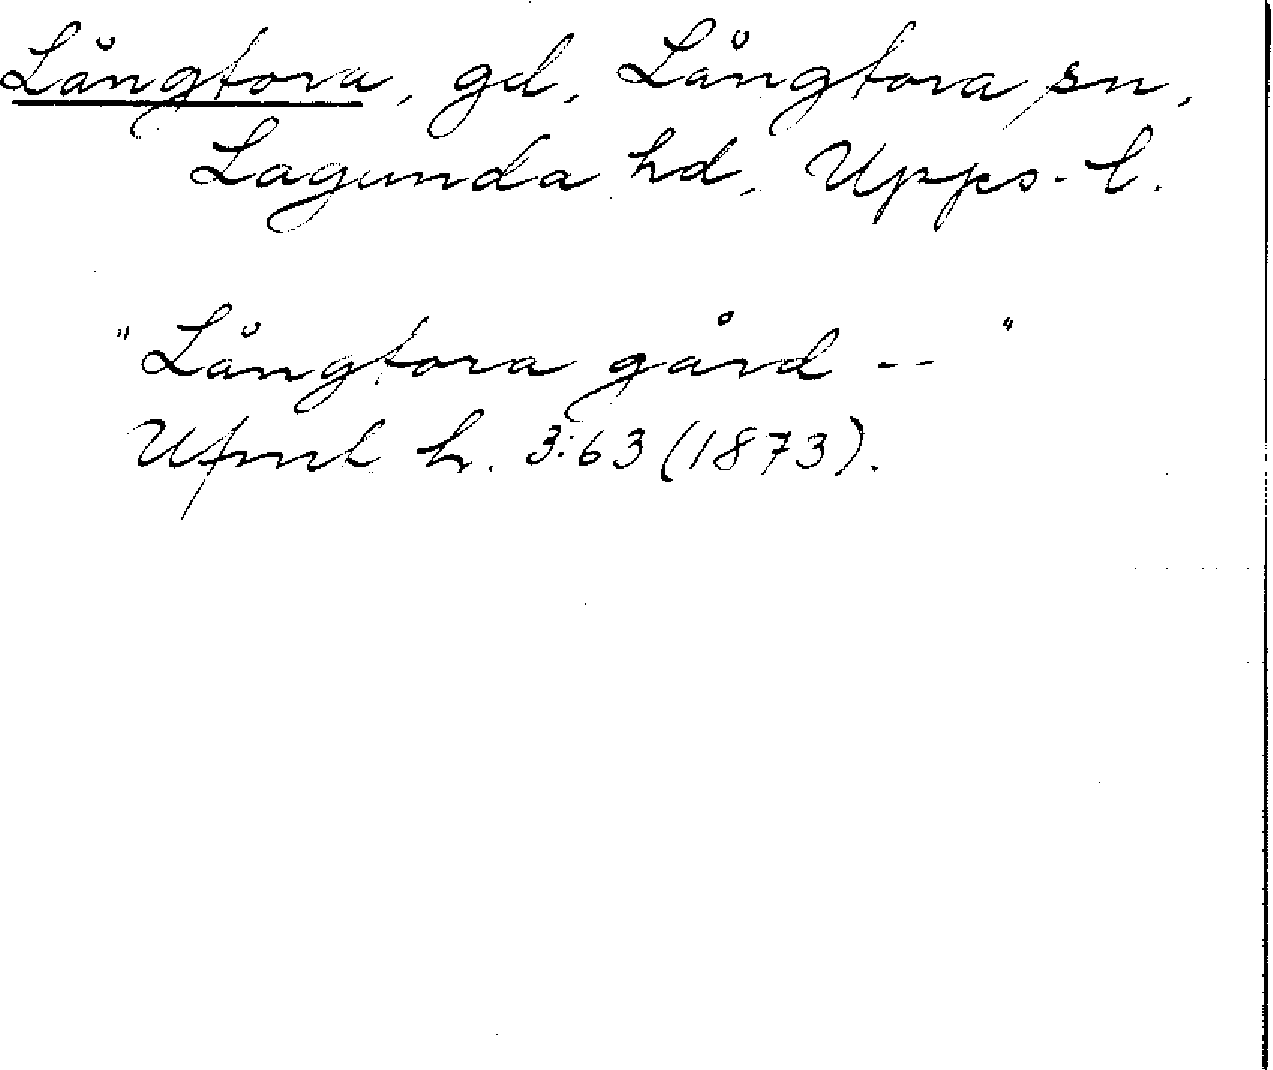 Långtora, gd, Långtora sn,
Lagunda hd, Upps. l.
"Långtora gård -- "
Ufmt h. 3:63 (1873).